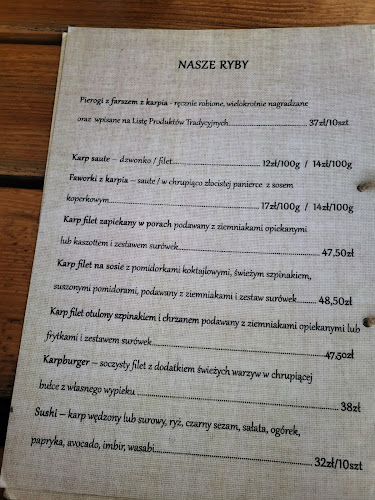 NASZE RYBY
Pierogi z farszem z karpia - ręcznie robione, wielokrotnie nagradzane
oraz wpisane na Listę Produktów Tradycyjnych............................37zł/10szt
Karp saute – dzwonko / filet..............................12zł/100g / 14zł/100g
Faworki z karpia – saute / w chrupiąco złocistej panierce z sosem
koperkowym...............................................17zł/100g / 14zł/100g
Karp filet zapiekany w porach podawany z ziemniakami opiekanymi
lub kaszottem i zestawem surówek............................................47,50zł
Karp filet na sosie z pomidorkami koktajlowymi, świeżym szpinakiem,
suszonymi pomidorami, podawany z ziemniakami i zestaw surówek.......48,50zł
Karp filet otulony szpinakiem i chrzanem podawany z ziemniakami opiekanymi lub
frytkami i zestawem surówek.....................................................47,50zł
Karpburger – soczysty filet z dodatkiem świeżych warzyw w chrupiącej
bułce z własnego wypieku .........................................................38zł
Sushi – karp wędzony lub surowy, ryż, czarny sezam, sałata, ogórek,
papryka, avocado, imbir, wasabi............................................32zł/10szt